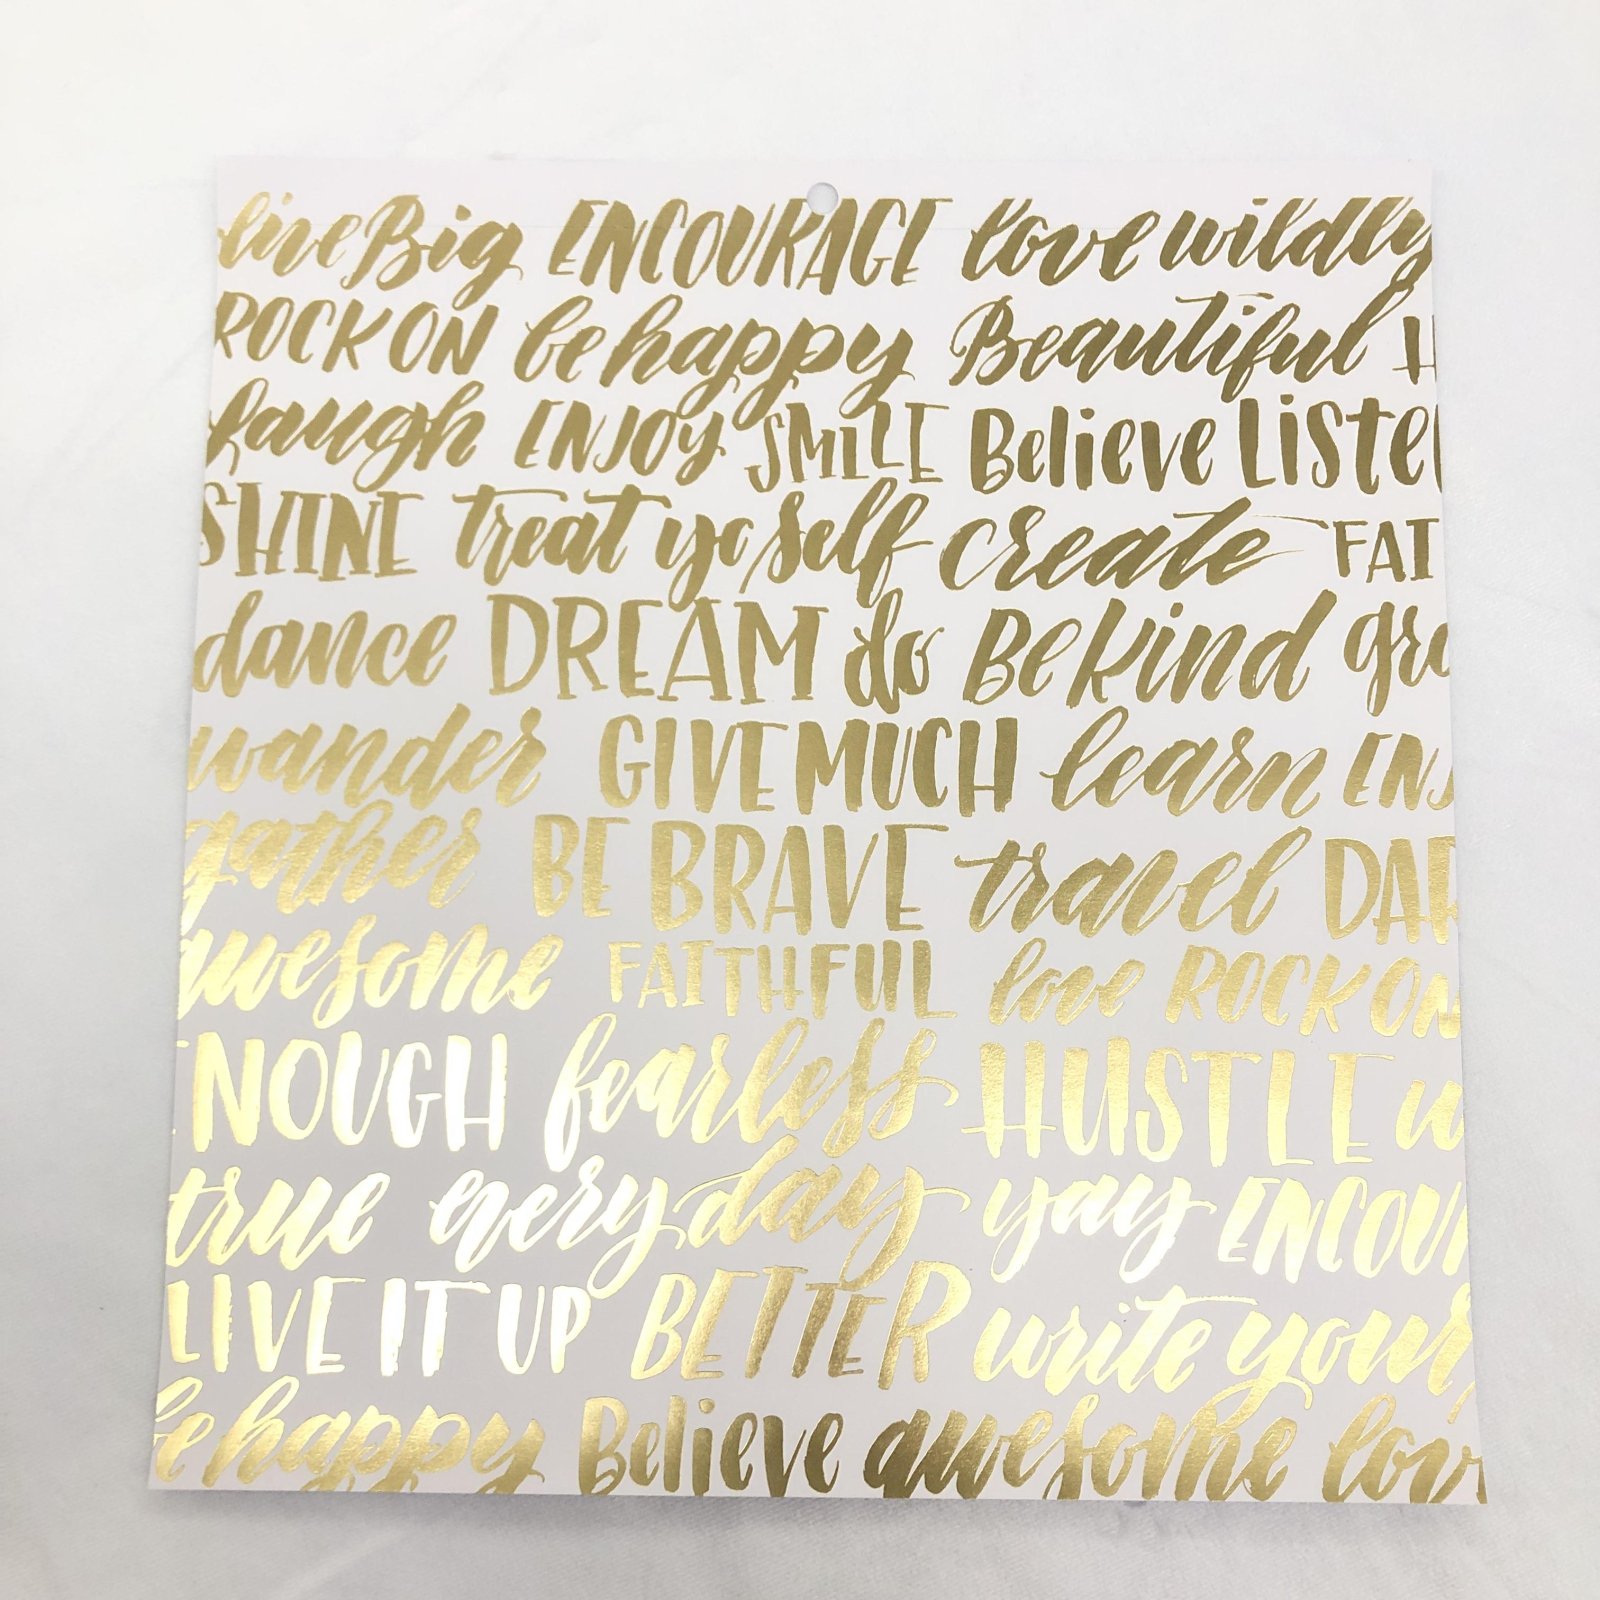 live Big ENCOURAGE love wildly
ROCK ON be happy Beautiful H
laugh ENJOY SMILE Believe Listen
SHINE treat yo self create FAIT
dance DREAM do Be kind gr
wander GIVE MUCH learn ENJ
gather BE BRAVE travel DAR
awesome FAITHFUL love ROCK ON
ENOUGH fearless HUSTLE w
true every day yay ENCOU
LIVE IT UP BETTER write your
be happy Believe awesome lov